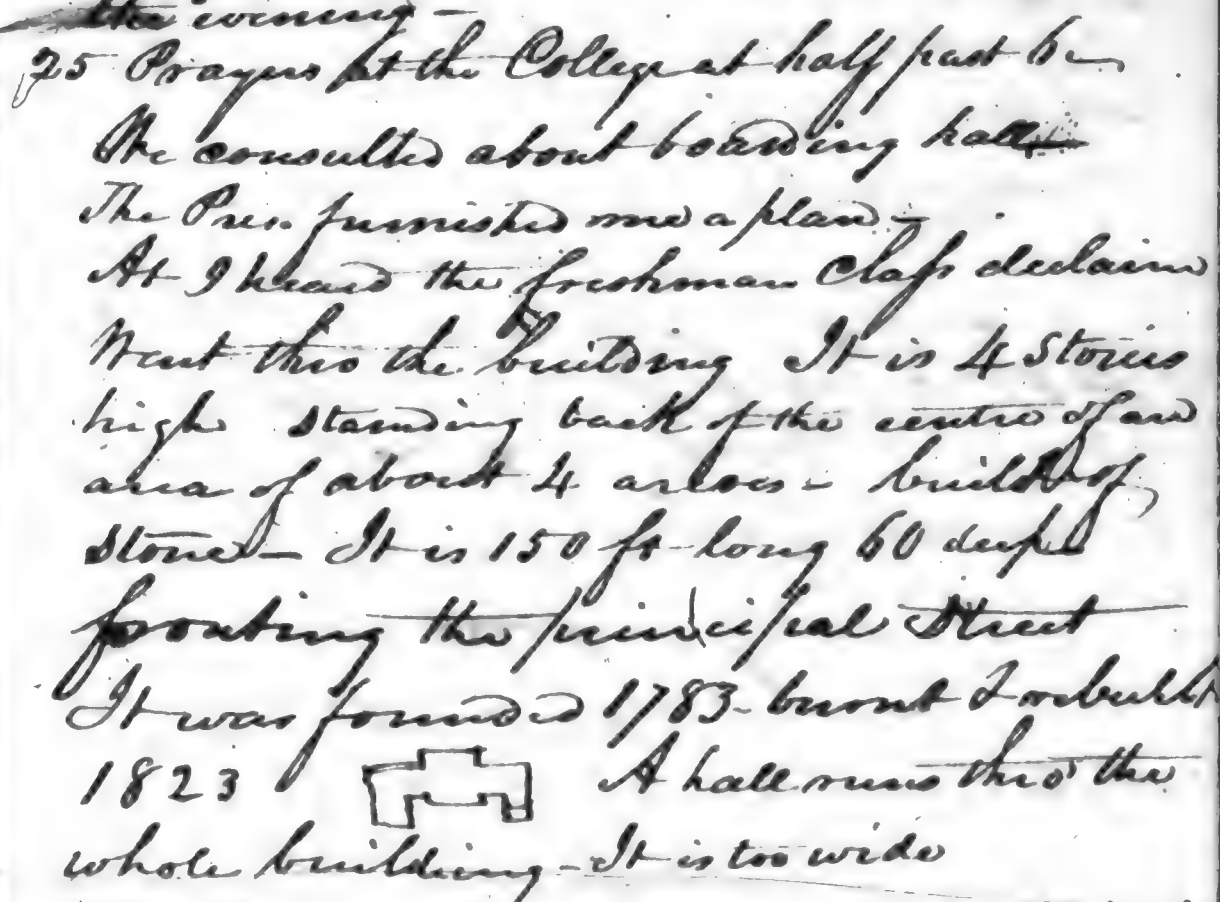 the evening –
25 Prayers at the College at half past 6 –
We consulted about boarding hall
The Pres. furnished me a plan –
At I heard the freshman Claſs declaim
Went thro the building It is 4 Stories
high standing back of the centre of an
area of about 4 acres – built of
Stone – It is 150 ft long 60 deep
fronting the principal Street
It was founded 1783 – burnt & rebuilt
1823 A hall runs thro' the
whole building – It is too wide